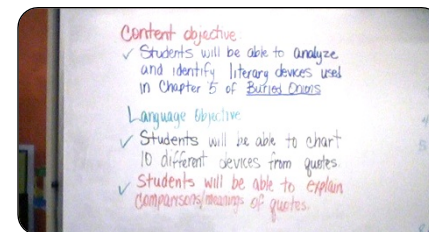 Content objective:
✓ Students will be able to analyze
and identify literary devices used
in Chapter 5 of Buried Onions
Language Objective:
✓ Students will be able to chart
10 different devices from quotes.
✓ Students will be able to explain
comparisons/meanings of quotes.